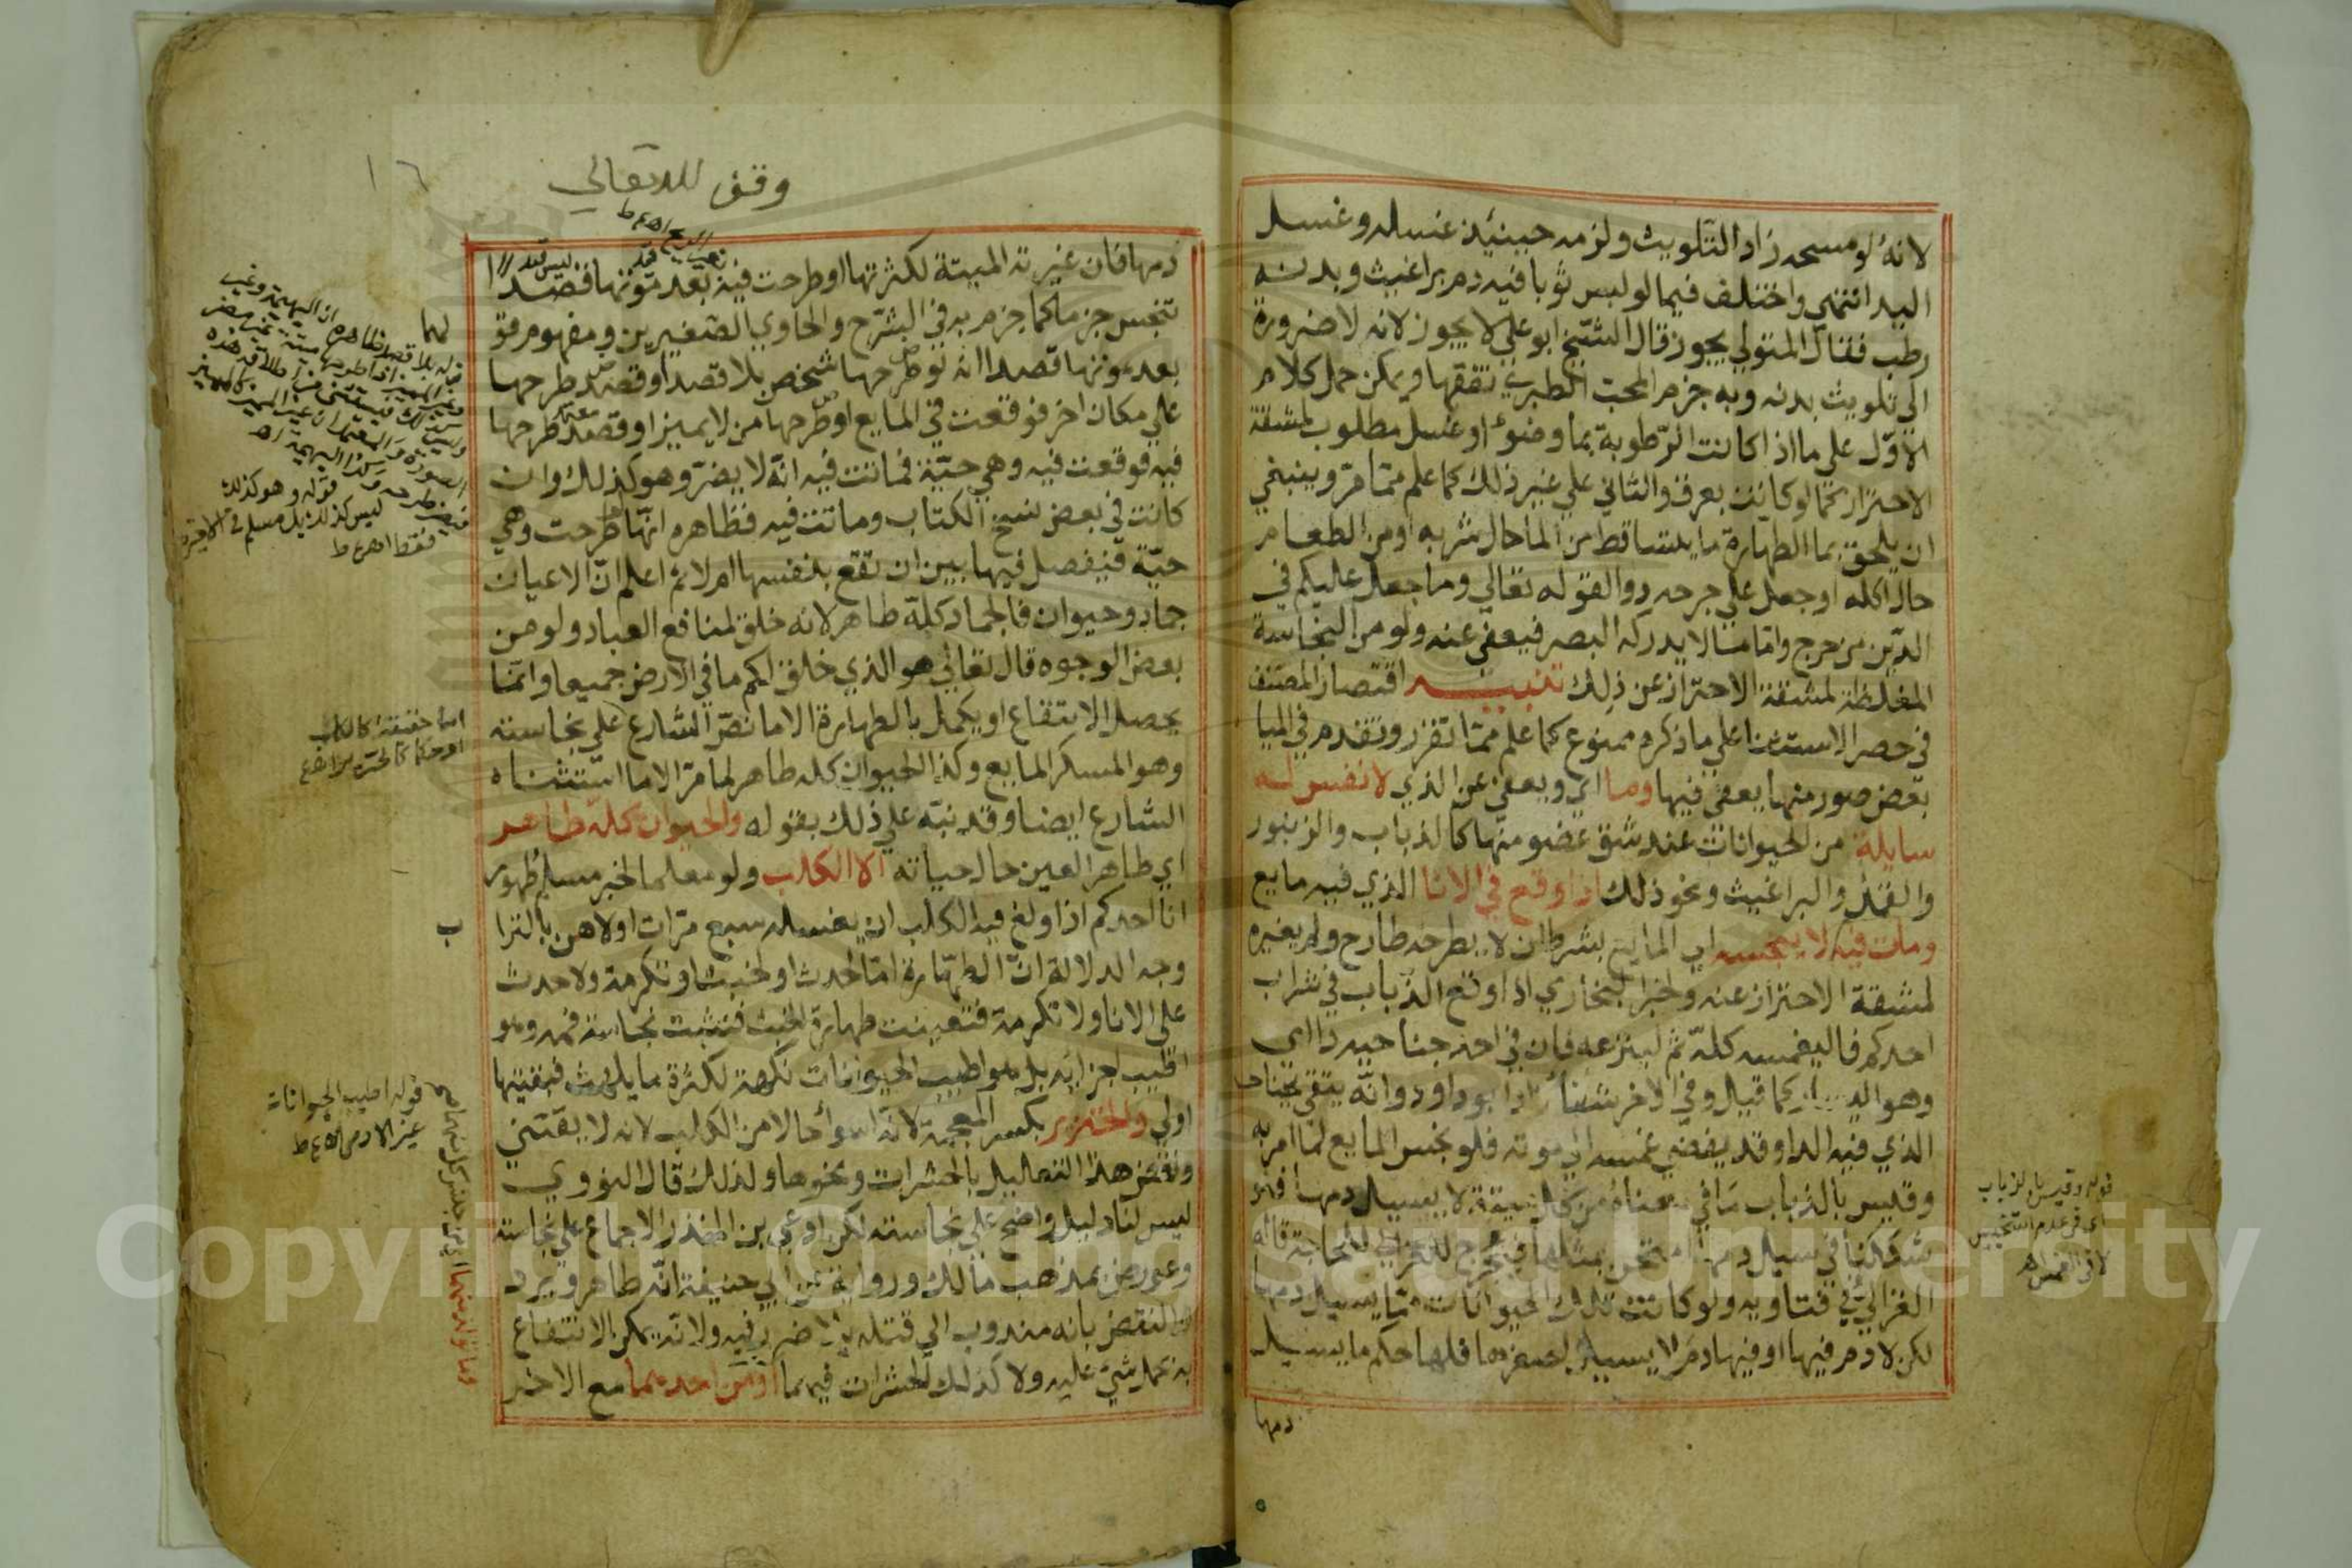 لانه لو مسحه زاد التلويث ولزمه حينئذ غسله وغسل
اليد انتهي واختلف فيما لو لبس ثوبا فيه دم براغيث وبدنه
رطب فقال المتولي يجوز قال الشيخ ابو علي لا يجوز لانه لا ضرورة
الي تلويث بدنه وبه جزم المحب الطبري تفقها ويمكن حمل كلام
الاول علي ما اذا كانت الرطوبة بما وضوء او غسل مطلوب لمشقة
الاحتراز كما لو كانت بعرق والثاني علي غير ذلك كما علم مما مر وينبغي
ان يلحق بما الطهارة ما يتساقط من الما حال شربه او من الطعام
حال اكله او جعل علي جرحه دوا لقوله تعالي وما جعل عليكم في
الدين من حرج واما ما لا يدركه البصر فيعفي عنه ولو من النجاسة
المغلظة لمشقة الاحتراز عن ذلك تنبيه اقتصار المصنف
في حصر الاستثنا علي ما ذكره ممنوع كما علم مما تقرر وتقدم في الميا
بعض صور منها يعفي فيها وما اي ويعفي عن الذي لا نفس له
سايلة من الحيوانات عند شق عضو منها كالذباب والزنبور
والقمل والبراغيث ونحو ذلك اذا وقع في الانا الذي فيه مايع
ومات فيه لا ينجسه اي المايع بشرط ان لا يطرحه طارح ولم يغيره
لمشقة الاحتراز عنه ولخبر البخاري اذا وقع الذباب في شراب
احدكم فاليغمسه كله ثم لينزعه فان في احد جناحيه دا اي
وهو اليسار كما قيل وفي الاخر شفاء زاد ابو داود وانه يتقي بجناحه
الذي فيه الدا وقد يفضي غمسه الي موته فلو نجس المايع لما امر به
وقيس بالذباب ما في معناه من كل ميتة لا يسيل دمها فلو
شككنا في سيل دمها امتحن بمثلها فيجرح للحاجة قاله
الغزالي في فتاويه ولو كانت تلك الحيوانات مما يسيل دمها
لكن لا دم فيها او فيها دم لا يسيل لصغرها فلها حكم ما يسيل
دمها
قوله وقيس بالذباب
اي في عدم التنجيس
لا في الغمس اه
وقف لله تعالي
١٦
دمها فان غيرته الميتة لكثرتها او طرحت فيه بعد موتها قصدا
تنجس جزما كما جزم به في الشرح والحاوي الصغيرين ومفهوم قو
بعد موتها قصدا انه لو طرحها شخص بلا قصد او قصد طرحها
علي مكان اخر فوقعت في المايع او طرحها من لا يميز او قصد طرحها
فيه فوقعت فيه وهي حية فماتت فيه انه لا يضر وهو كذلك وان
كانت في بعض نسخ الكتاب وماتت فيه فظاهره انها طرحت وهي
حية فيفصل فيها بين ان تقع بنفسها ام لا ثم اعلم ان الاعيان
جماد وحيوان فالجماد كله طاهر لانه خلق لمنافع العباد ولو من
بعض الوجوه قال تعالي هو الذي خلق لكم ما في الارض جميعا وانما
يحصل الانتفاع او يكمل بالطهارة الا ما نص الشارع علي نجاسته
وهو المسكر المايع وكذا الحيوان كله طاهر لما مر الا ما استثناه
الشارع ايضا وقد نبه علي ذلك بقوله والحيوان كله طاهر
اي طاهر العين حال حياته الا الكلب ولو معلما لخبر مسلم طهور
انا احدكم اذا ولغ فيه الكلب ان يغسله سبع مرات اولاهن بالترا
ب
وجه الدلالة ان الطهارة اما لحدث او لخبث او تكرمة ولا حدث
علي الانا ولا تكرمة فتعينت طهارة الخبث فثبتت نجاسة فمه وهو
اطيب اجزايه بل هو اطيب الحيوانات نكهة لكثرة ما يلهث فبقيتها
اولي والخنزير بكسر المعجمة لانه اسوأ حالا من الكلب لانه لا يقتني
ونقض هذا التعليل بالحشرات ونحوها ولذلك قال النووي
ليس لنا دليل واضح علي نجاسته لكن ادعي بن المنذر الاجماع علي نجاسته
وعورض بمذهب مالك ورواية عن ابي حنيفة انه طاهر ويرد
النقض بانه مندوب الي قتله بلا ضرر فيه ولانه يمكن الانتفاع
به بحمل شي عليه ولا كذلك الحشرات فيهما او من احدهما مع الاخر
لها
قوله وهو كذلك
ليس كذلك بل مسلم في الاخيرة
فقط اه ع ط
اما حقيقة كالكلب
قوله اطيب الحيوانات
غير الادمي اه ع ط
وما تولد منهما